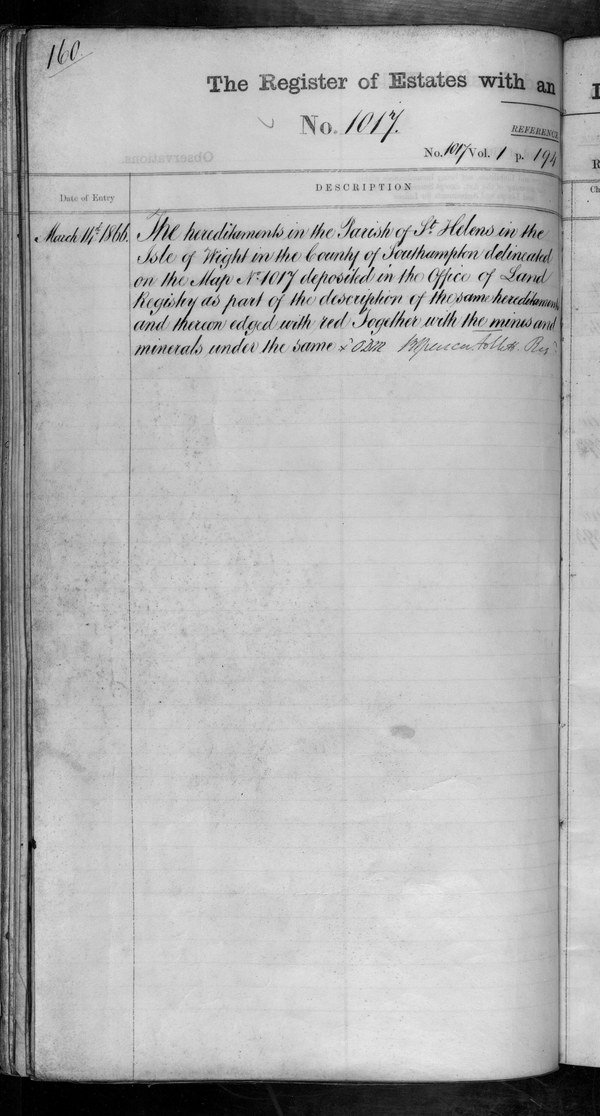 160
The Register of Estates with an
No. 1017.
REFERENCE
No. 1017 Vol. 1 p. 194
Observations.
Date of Entry
DESCRIPTION
March 14th 1866.
The hereditaments in the Parish of St. Helens in the
Isle of Wight in the County of Southampton delineated
on the Map No. 1017 deposited in the Office of Land
Registry as part of the description of the same hereditaments
and thereon edged with red Together with the mines and
minerals under the same